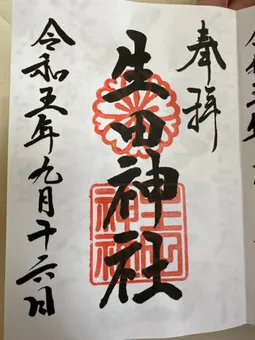 奉拝
生田神社
令和五年九月十六日